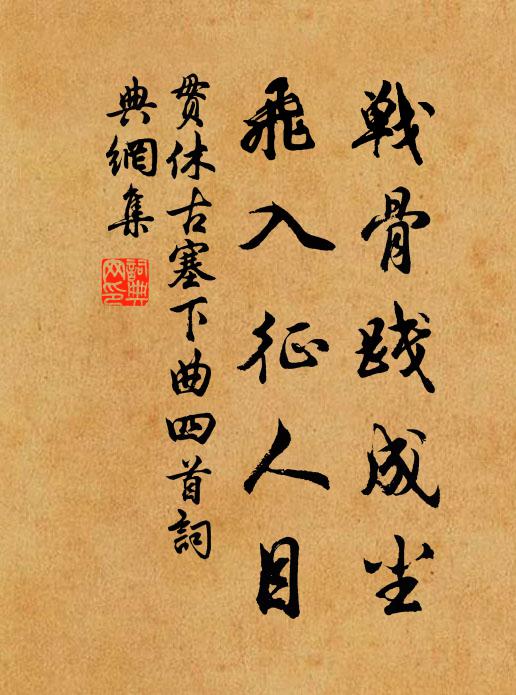 戦骨践成尘
飛入征人目
貫休古塞下曲四首詞
典網集
詞典
网印